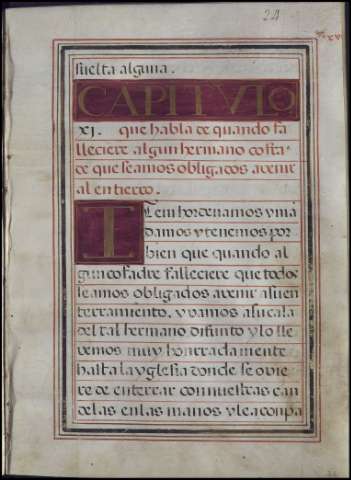 24
suelta alguna.
CAPITULO
XJ. que habla de quando fa
lleciere algun hermano cofra
de que seamos obligados avenir
al entierro.
ITem hordenamos y mã
damos y tenemos por
bien que quando al
gun cofadre falleciere que todos
seamos obligados avenir asu en
terramiento, y vamos asu casa
del tal hermano difunto y lo lle
vemos muy honrradamente
hasta la yglesia donde se ovie
re de enterrar con nuestras can
delas en las manos y le aconpa